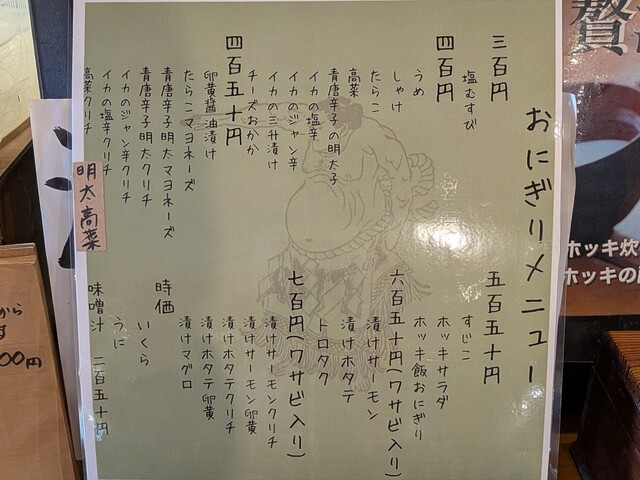 おにぎりメニュー
三百円
塩むすび
四百円
うめ
しゃけ
たらこ
高菜
青唐辛子の明太子
イカの塩辛
イカのジャン辛
イカの三升漬け
チーズおかか
四百五十円
卵黄醤油漬け
たらこマヨネーズ
青唐辛子明太マヨネーズ
青唐辛子明太クリチ
イカのジャン辛クリチ
イカの塩辛クリチ
高菜クリチ
明太高菜
五百五十円
すじこ
ホッキサラダ
ホッキ飯おにぎり
六百五十円(ワサビ入り)
漬けサーモン
漬けホタテ
トロタク
七百円(ワサビ入り)
漬けサーモンクリチ
漬けサーモン卵黄
漬けホタテクリチ
漬けホタテ卵黄
漬けマグロ
時価
いくら
うに
味噌汁 二百五十円
贅
ホッキ炊
ホッキの
から
00円